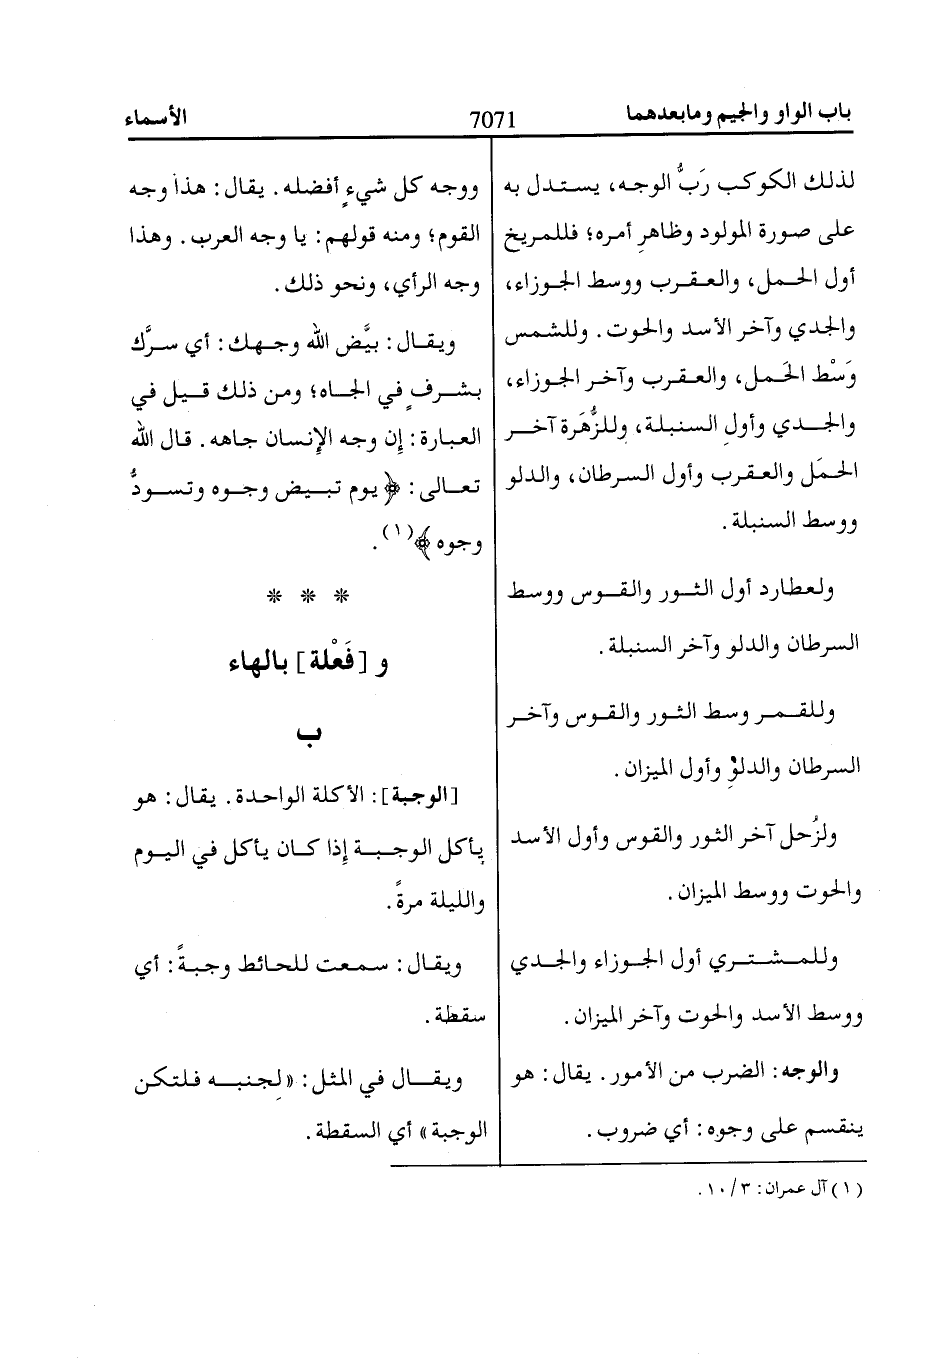 باب الواو والجيم ومابعدهما 7071 الأسماء
لذلك الكوكب رَبُّ الوجه، يستدل به
على صورة المولود وظاهرِ أمره؛ فللمريخ
أول الحمل، والعقرب ووسط الجوزاء،
والجدي وآخر الأسد والحوت. وللشمس
وَسْط الحَمل، والعقرب وآخر الجوزاء،
والجدي وأولِ السنبلة، وللزُّهَرة آخر
الحمَل والعقرب وأول السرطان، والدلو
ووسط السنبلة.
ولعطارد أول الثور والقوس ووسط
السرطان والدلو وآخر السنبلة.
وللقمر وسط الثور والقوس وآخر
السرطان والدلوْ وأولِ الميزان.
ولزُحل آخر الثور والقوس وأول الأسد
والحوت ووسط الميزان.
وللمشتري أول الجوزاء والجدي
ووسط الأسد والحوت وآخر الميزان.
والوجه: الضرب من الأمور. يقال: هو
ينقسم على وجوه: أي ضروب.
ووجه كل شيءٍ أفضله. يقال: هذا وجه
القوم؛ ومنه قولهم: يا وجه العرب. وهذا
وجه الرأي، ونحو ذلك.
ويقال: بيَّض الله وجهك: أي سرَّك
بشرفٍ في الجاه؛ ومن ذلك قيل في
العبارة: إن وجه الإنسان جاهه. قال الله
تعالى: ﴿يوم تبيض وجوه وتسودُّ
وجوه﴾(١).
* * *
و [فَعْلة] بالهاء
ب
[الوجبة]: الأكلة الواحدة. يقال: هو
يأكل الوجبة إذا كان يأكل في اليوم
والليلة مرةً.
ويقال: سمعت للحائط وجبةً: أي
سقطة.
ويقال في المثل: «لجنبِه فلتكن
الوجبة» أي السقطة.
(١) آل عمران: ١٠/٣.